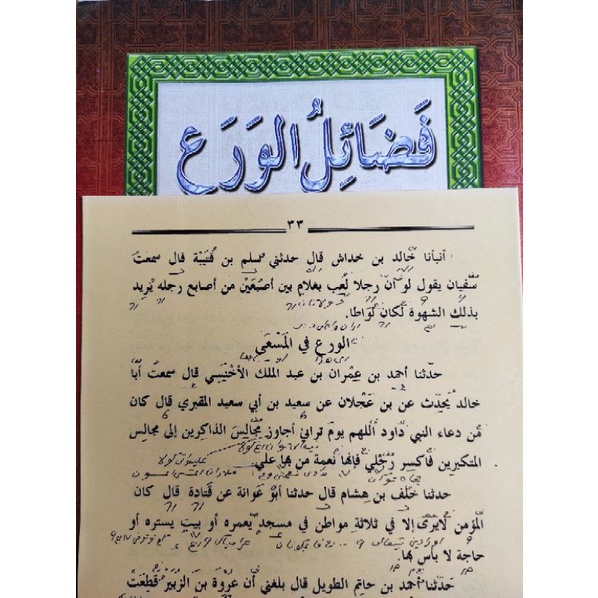 فَضَائِلُ الوَرَع
٣٣
أنبأنا خالد بن خداش قال حدثني مسلم بن قتيبة قال سمعت
سفيان يقول لو أن رجلا لعب بغلام بين أصبعين من أصابع رجله يريد
بذلك الشهوة لكان لواطا.
الورع في المَسْعَى
حدثنا أحمد بن عمران بن عبد الملك الأخنسي قال سمعت أبا
خالد يحدث عن بن عجلان عن سعيد بن أبي سعيد المقبري قال كان
من دعاء النبي داود اللهم يوم تراني أجاوز مجالس الذاكرين إلى مجالس
المتكبرين فأكسر رجلي فإنها نعمة من بها علي.
حدثنا خلف بن هشام قال حدثنا أبو عوانة عن قتادة قال كان
المؤمن لا يرى إلا في ثلاثة مواطن في مسجد يعمره أو بيت يستره أو
حاجة لا بأس بها.
حدثنا أحمد بن حاتم الطويل قال بلغني أن عروة بن الزبير قطعت